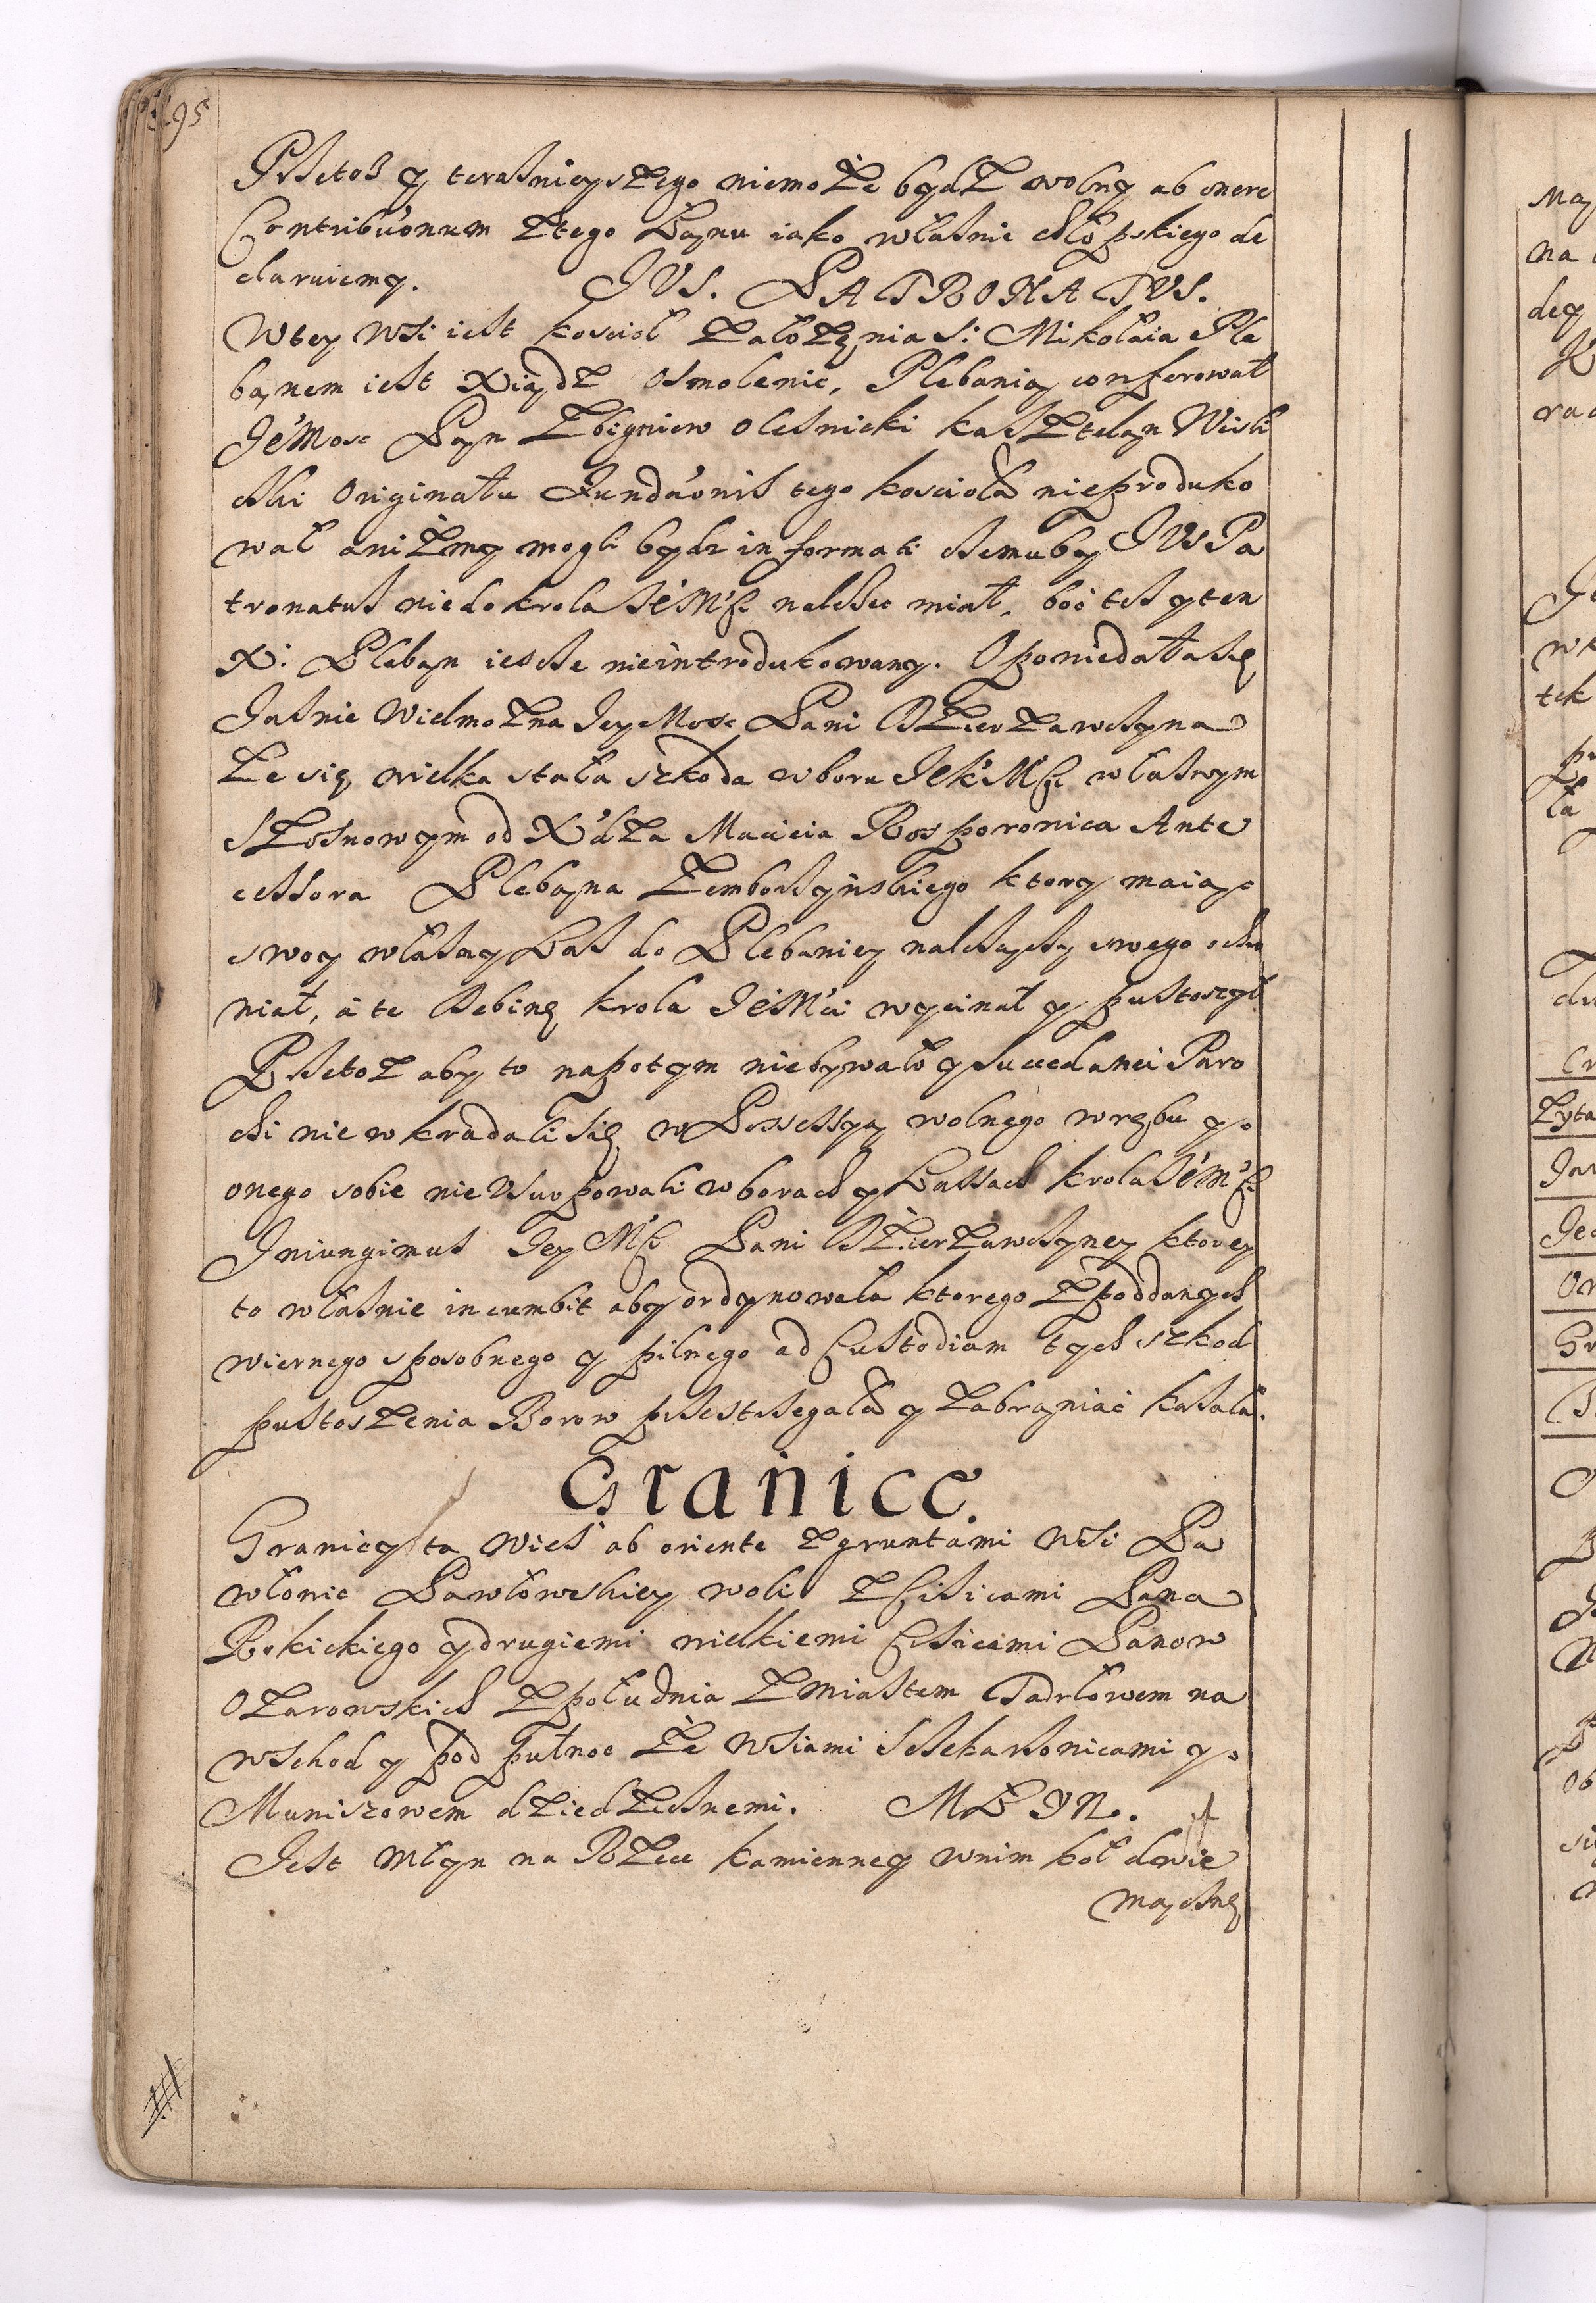 195
Przetoż y teraznieyszego niemoże bydz wolny ab onere
Contribuonum z tego Łanu iako własnie chłopskiego de
claruiemy. IVS. PATRONATVS.
Wtey wsi iest kosciol załoząnia S: Mikołaia Ple
banem iest Xiądz Osmolenic, Plebanią conferował
Je'Mosc Pan Zbigniew Olesnicki kasztelan Wisli
cki Originału Fundaonis tego koscioła nieproduko
wał anizmy mogli bydz informati czemuby IVS Pa
tronatus niedo krola JéMci nalezec miał, boć tez y ten
X: Pleban iescze nieintrodukowany. Opowiedała się
Jasnie Wielmozna Jey Mosc Pani Dzierzawczyna
Ze się wielka stała szkoda w boru JeKMci własnym
Szosnowym od X'dza Macieia Rosporonica Ante
cessora Plebana Zemborzynskiego ktory maiąc
swoy własny Las do Plebaniey nalezący swego ocha
niał, á te rzebine krola JéMci wycinał y pustoszył
Przetoz aby to napotym niebywało y succedanei Paro
chi nie wkradali się w Possessyą wolnego wrębu y
onego sobie nie Vsurpowali w borach y Lassach krola JéMci
Iniungimus Jey Mci Pani Dzierzawczyney ktorey
to własnie incumbit aby ordynowała ktorego z poddanych
wiernego sposobnego y pilnego ad Custodiam tych szkod
pustoszenia Borow przestrzegała y zabraniać kazała.
Granice.
Graniczy ta Wies ab oriente z gruntami Wsi Pa
włowic Pawłowskiey woli z Cisicami Pana
Rokickiego y drugiemi wielkiemi Cisicami Panow
Ozarowskich z południa z miastem Tadrłowem na
wschod y pod pułnoc ze Wsiami Sczekarzonicami y
Muniszowem dziedzicznemi. MŁYN.
Jest Młyn na Rzece kamienney wnim koł dwie
mączne